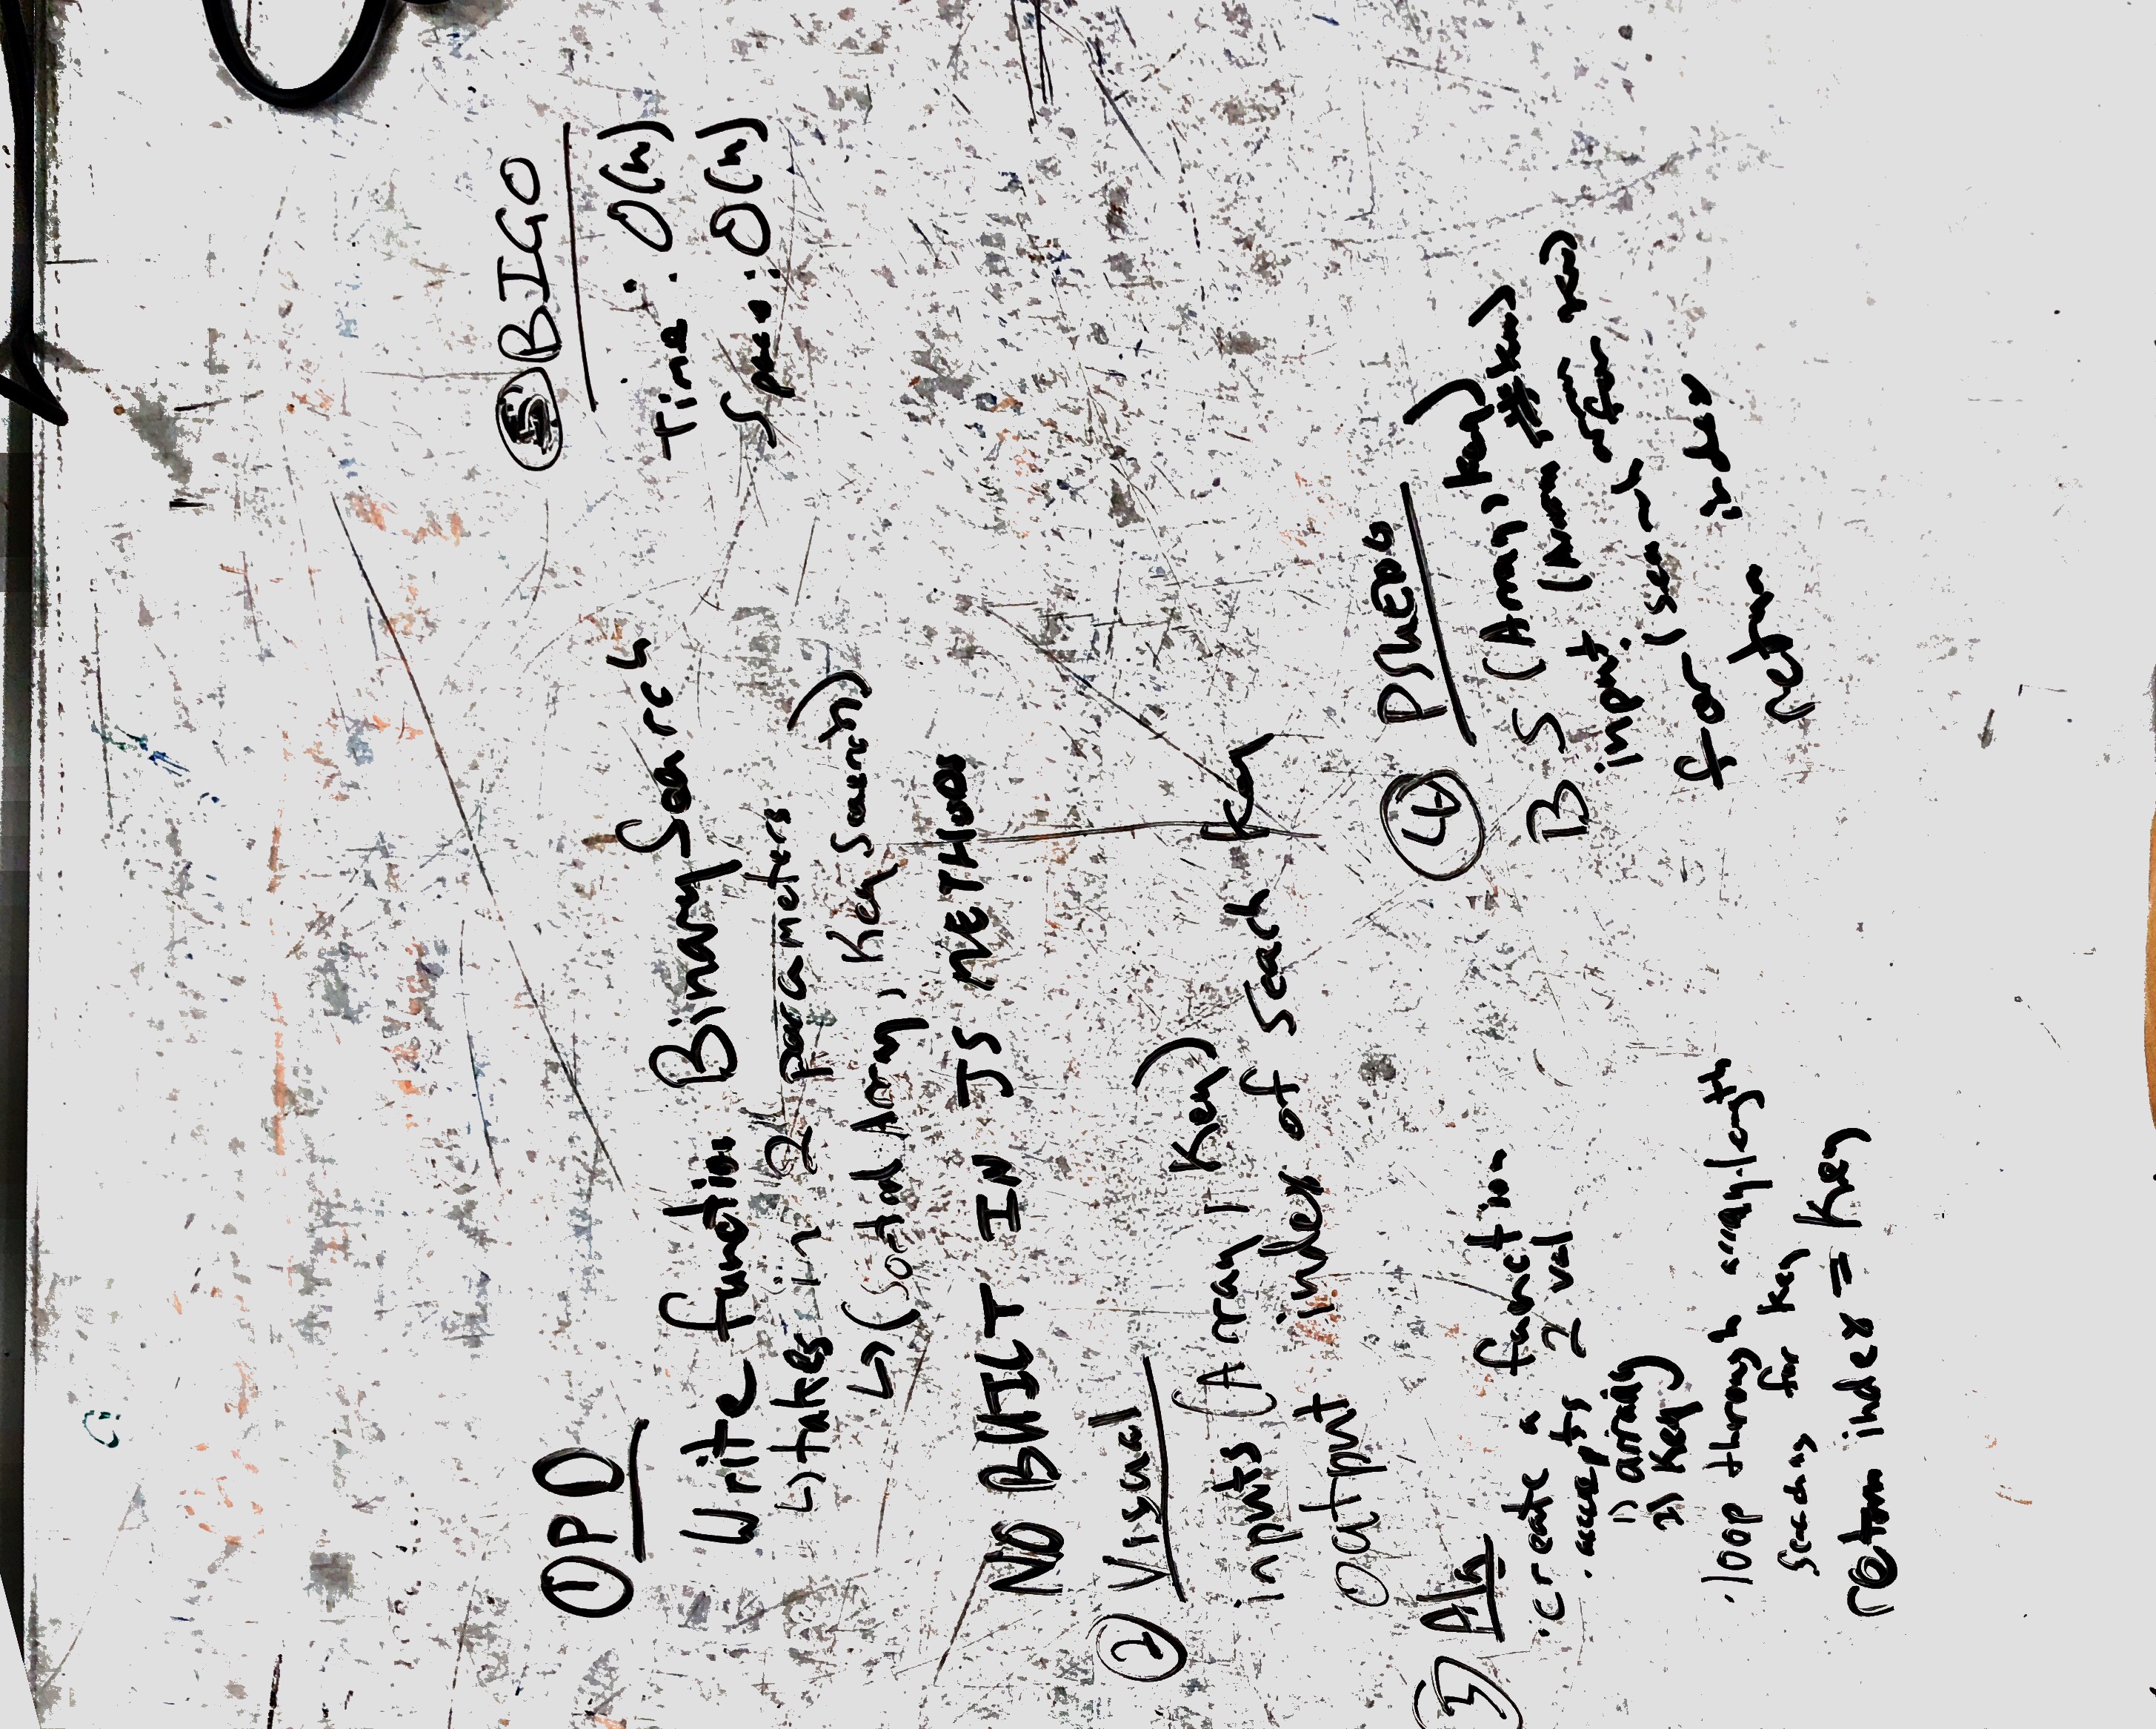 ① PD
Write function BinarySearch
↳ takes in 2 parameters
↳ (Sorted Array, Key Search)
NO BUILT IN JS METHODS
② Visual
inputs (Array, Key)
Output index of Search Key
③ Alg
· create a function
· accepts 2 val
1) array
2) Key
· loop through array.length
for key
return index = Key
④ PSUEDO
BS (Array, key)
input
for (search
return index
⑤ BIGO
Time: O(n)
Space: O(n)